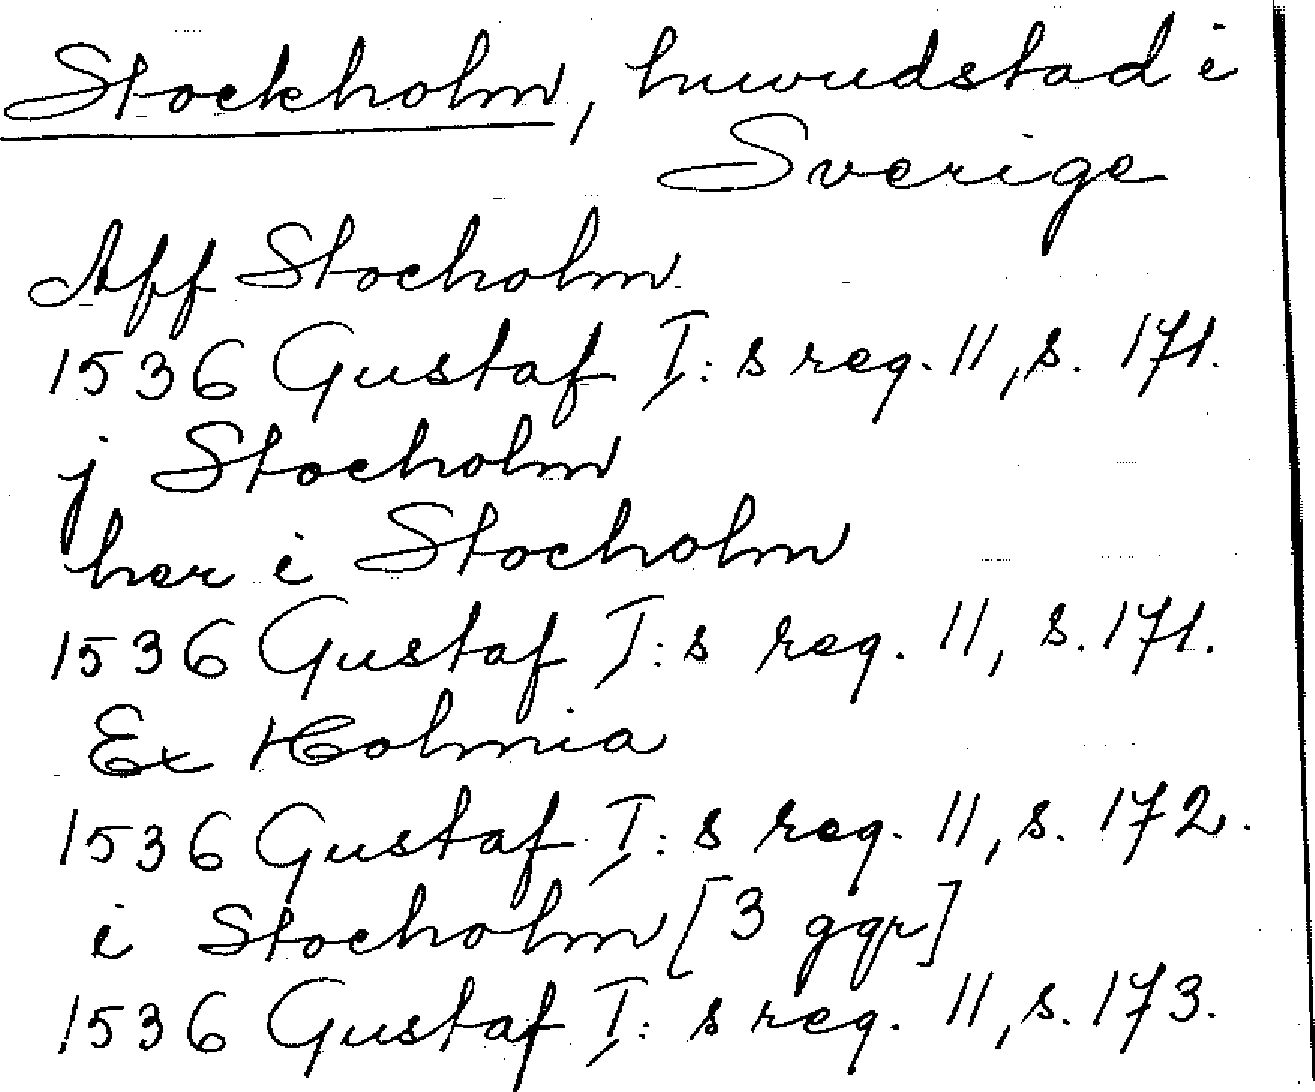 Stockholm, huvudstad i
Sverige
Aff Stocholm
1536 Gustaf I:s reg. 11, s. 171.
j Stocholm
her i Stocholm
1536 Gustaf I:s reg. 11, s. 171.
Ex Holmia
1536 Gustaf I:s reg. 11, s. 172.
i Stocholm [3 ggr]
1536 Gustaf I:s reg. 11, s. 173.